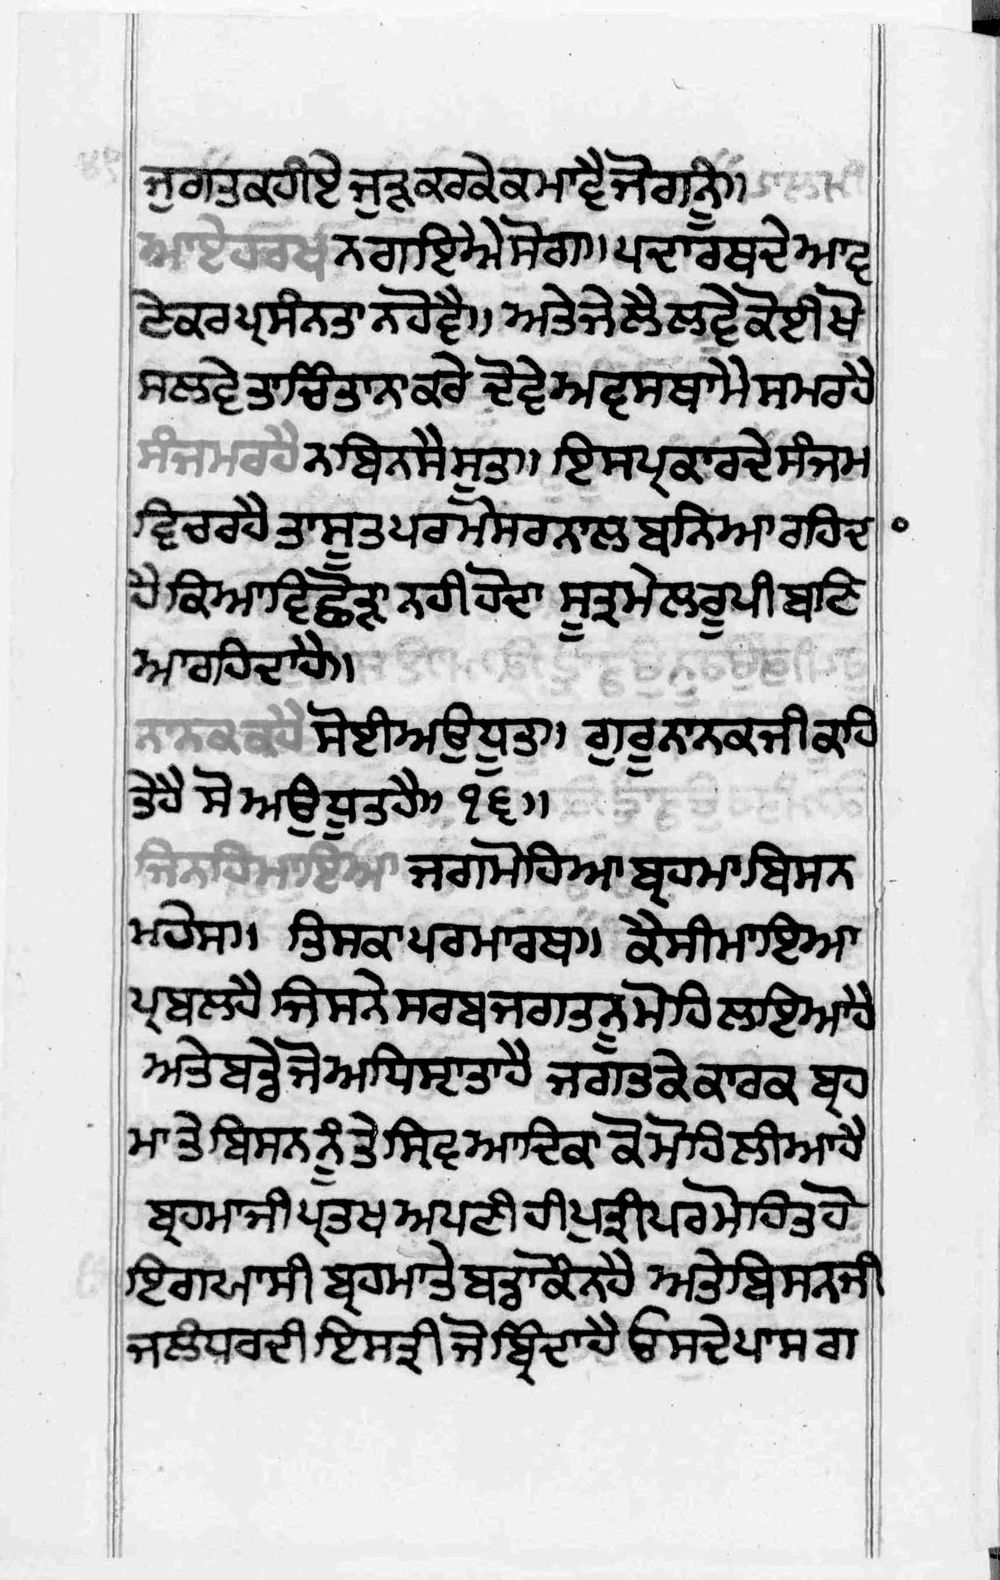 ਜੁਗਤਕਹੀਏ ਜੁੜਕਰਕੇਕਮਾਵੈਜੋਗਨੂੰ॥
ਆਏਹਰਖਨਗਇਐਸੋਗ॥ਪਦਾਰਥਦੇਆਵ
ਣੇਕਰਪ੍ਰਸੰਨਤਾਨਹੋਵੈ॥ਅਤੇਜੇਲੈਲਵੇਕੋਈਖੋ
ਸਲਵੇਤਾਚਿੰਤਾਨਾਕਰੇ ਦੋਵੇਅਵਸਥਾਮੈਸਮਰਹੈ
ਸੰਜਮਰਹੈਨਬਿਨਸੈਸੂਤ॥ਇਸਪ੍ਰਕਾਰਦੇਸੰਜਮ
ਵਿਚਰਹੈਤਾਸੂਤਪਰਮੇਸਰਨਾਲਬਨਿਆਰਹਿਦ
ਹੈਕਿਆਵਿਛੋੜਾਨਹੀਹੋਦਾ ਸੂਤ੍ਰਮੇਲਰੂਪੀਬਣਿ
ਆਰਹਿਦਾਹੈ॥
ਨਾਨਕਕਹੈਸੋਈਅਉਧੂਤ॥ ਗੁਰੂਨਾਨਕਜੀਕਹਿ
ਤੇਹੈ ਸੋਅਉਧੂਤਹੈ॥੧੬॥
ਜਿਨਹਿਮਾਇਆਜਗਮੋਹਿਆਬ੍ਰਹਮਾਬਿਸਨ
ਮਹੇਸ॥ ਤਿਸਕਾਪਰਮਾਰਥ॥ ਕੈਸੀਮਾਇਆ
ਪ੍ਰਬਲਹੈਜਿਸਨੇਸਰਬਜਗਤਨੂੰਮੋਹਿਲਇਆਹੈ
ਅਤੇਬਡੇਜੋਅਧਿਸ਼ਾਤਾਹੈ ਜਗਤਕੇਕਾਰਕ ਬ੍ਰਹ
ਮਾਤੇਬਿਸਨਨੂੰਤੇਸਿਵਆਦਿਕਾਕੋਮੋਹਿਲੀਆਹੈ
ਬ੍ਰਹਮਾਜੀਪ੍ਰਤਖਅਪਣੀਹੀਪੁਤ੍ਰੀਪਰਮੋਹਿਤਹੋ
ਇਗਆਸੀਬ੍ਰਹਮਾਤੇਬਡਾਕੌਨਹੈ ਅਤੇਬਿਸਨਜੀ
ਜਲੰਧਰਦੀਇਸਤ੍ਰੀਜੋਬ੍ਰਿੰਦਾਹੈਓਸਦੇਪਾਸਗ